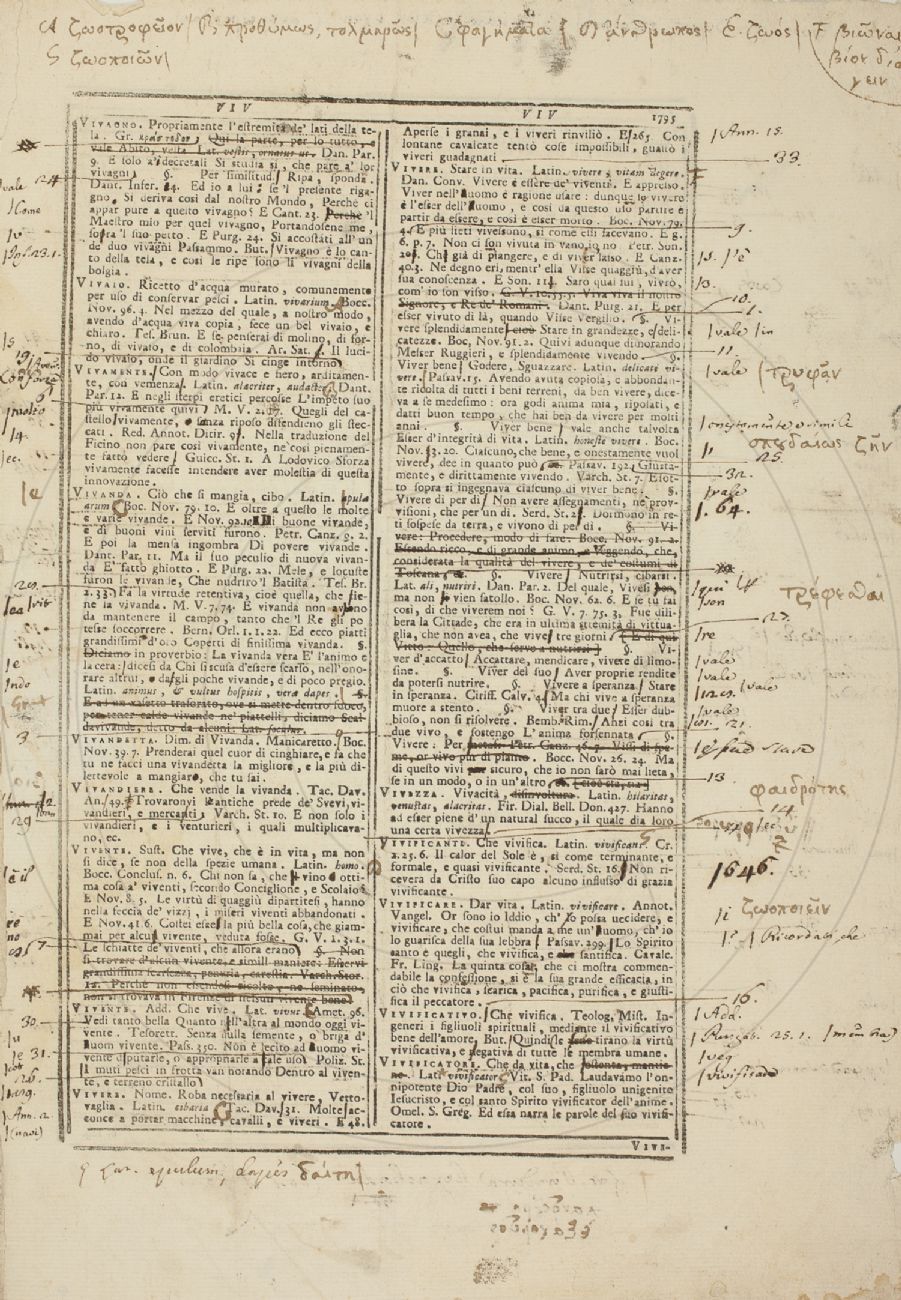 A ζωοτροφεῖον B προθύμως, τολμηρῶς C φαγήματα D ἄνθρωπος E ζωός F βιῶναι
G ζωοποιῶν βίον διά
γειν
VIV
VIV 1795
VIVAGNO. Propriamente l'estremità de' lati della te-
la. Gr.
vale Abito, veste Lat. vestis, ornatus us. Dan. Par.
9. E solo a' decretali Si studia sì, che pare a' lor
vivagni §. Per similitud. Ripa, sponda.
Dant. Infer. 14. Ed io a lui: se 'l presente riga-
gno, Si deriva così dal nostro Mondo, Perchè ci
appar pure a questo vivagno? E Cant. 23. Perchè 'l
Maestro mio per quel vivagno, Portandosene me,
sopra 'l suo petto. E Purg. 24. Sì accostati all'un
de' duo vivagni Passammo. But. Vivagno è lo can-
to della tela, e così le ripe son li vivagni della
bolgia.
VIVAIO. Ricetto d'acqua murato, comunemente
per uso di conservar pesci. Latin. vivarium. Bocc.
Nov. 96. 4. Nel mezzo del quale, a nostro modo,
avendo d'acqua viva copia, fece un bel vivaio, e
chiaro. Tes. Brun. E se penserai di molino, di for-
no, di vivaio, e di colombaia. Ar. Sat. Il luci-
do vivaio, onde il giardino Si cinge intorno
VIVAMENTE. Con modo vivace e fiero, arditamen-
te, con vemenza. Latin. alacriter, audacter. Dant.
Par. 12. E negli sterpi eretici percosse L'impeto suo
più vivamente quivi M. V. 2. Quegli del ca-
stello vivamente, e sanza riposo difendieno gli stec-
cati. Red. Annot. Ditir. 9. Nella traduzione del
Ficino non pare così vivamente, ne' così pienamen-
te fatto vedere Guicc. St. 1. A Lodovico Sforza
vivamente facesse intendere aver molestia di questa
innovazione.
VIVANDA. Ciò che si mangia, cibo. Latin. epula
arum Boc. Nov. 79. 10. E oltre a questo le molte
e varie vivande. E Nov. 92. di buone vivande,
e di buoni vini serviti furono. Petr. Canz. 9. 2.
E poi la mensa ingombra Di povere vivande.
Dant. Par. 11. Ma il suo peculio di nuova vivan-
da E' fatto ghiotto. E Purg. 22. Mele, e locuste
furon le vivande, Che nudriro 'l Batista. Tes. Br.
2. 33. Fa la virtude retentiva, cioè quella, che tie-
ne la vivanda. M. V. 7. 74. E vivanda non avieno
da mantenere il campo, tanto che 'l Re gli po
tesse soccorrere. Bern. Orl. 1. 1. 22. Ed ecco piatti
grandissimi d'oro Coperti di finissima vivanda. §.
Diciamo in proverbio: La vivanda vera E' l'animo e
la cera: dicesi da Chi si scusa d'essere scarso, nell'ono-
rare altrui, o dagli poche vivande, e di poco pregio.
Latin. animus, & vultus hospitis, vera dapes. §.
E a un vasetto traforato, ove si mette dentro fuoco,
per tener caldo vivande ne' piattelli, diciamo Scal-
davivande, detto da alcuni: Lat. foculus.
VIVANDETTA. Dim. di Vivanda. Manicaretto. Boc.
Nov. 39. 7. Prenderai quel cuor di cinghiare, e fa che
tu ne facci una vivandetta la migliore, e la più di-
lettevole a mangiare, che tu sai.
VIVANDIERE. Che vende la vivanda. Tac. Dav.
An. 49. Trovaronvi le antiche prede de' Svevi, vi-
vandieri, e mercanti Varch. St. 10. E non solo i
vivandieri, e i Venturieri, i quali multiplicava-
no, ec.
VIVENTE. Sust. Che vive, che è in vita, ma non
si dice, se non della spezie umana. Latin. homo.
Bocc. Conclus. n. 6. Chi non sa, che 'l vino è otti-
ma cosa a' viventi, secondo Cinciglione, e Scolaio
E Nov. 8. 5. Le virtù di quaggiù dipartitesi, hanno
nella feccia de' vizzj, i miseri viventi abbandonati.
E Nov. 41 6. Costei essere la più bella cosa, che giam-
mai per alcun vivente, veduta fosse. G. V. 1. 3. 1.
Le schiatte de' viventi, che allora erano §. Non
si trovare d'alcun vivente, e simili maniere: Esservi
grandissima scarsezza, penuria, carestia. Varch. Stor.
12. Perchè non essendosi ricolto, nè seminato,
non si trovava in Firenze di nessun vivente bene
VIVENTE. Add. Che vive. Lat. vivus. Amet. 96.
Vedi tanto bella Quanto nell'altra al mondo oggi vi-
vente. Tesorett. Senza nulla semente, o briga d'
uom vivente. Pass. 250. Non è lecito ad uomo vi-
vente disputarle, o appropriarle a tale uso Poliz. St.
I muti pesci in frotta van notando Dentro al viven-
te, e terreno cristallo
VIVERE. Nome. Roba necessaria al vivere, Vetto-
vaglia. Latin. cibaria Tac. Dav. 31. Molte ac-
conce a portar macchine, cavalli, e viveri. E 48.
Aperse i granai, e i viveri rinviliò. E 265. Con
lontane cavalcate tentò cose impossibili, guastò i
viveri guadagnati
VIVERE. Stare in vita. Latin. vivere, vitam degere.
Dan. Conv. Vivere è essere de' viventi. E appresso.
Viver nell'uomo è ragione usare: dunque se vivere
è l'esser dell'uomo, e così da questo uso partire è
partir da essere, e così è esser morto. Boc. Nov. 79.
4. E più lieti vivessono, sì come essi facevano. E g.
6. p. 7. Non ci son vivuta in vano io no Petr. Son.
205. Chi già di piangere, e di viver lasso. E Canz.
40. 3. Ne degno eri, mentr' ella Visse quaggiù, d'aver
sua conoscenza. E Son. 11 Sarò qual fui, vivrò,
com' io son visso. G. V. 10. 55. 5. Viva viva il nostro
Signore, e Re de' Romani. Dant. Purg. 21. E per
esser vivuto di là, quando Visse Vergilio. §. Vi-
vere splendidamente cioè Stare in grandezze, e deli-
catezze. Boc. Nov. 91. 2. Quivi adunque dimorando
Messer Ruggieri, e splendidamente vivendo §.
Viver bene Godere, Sguazzare. Latin. delicate vi-
vere. Passav. 15. Avendo avuta copiosa, e abbondan-
te ricolta di tutti i beni terreni, da ben vivere, dice-
va a se medesimo: ora godi anima mia, riposati, e
datti buon tempo, che hai ben da vivere per molti
anni. §. Viver bene vale anche talvolta
Esser d'integrità di vita. Latin. honeste vivere. Boc.
Nov. 3. 20. Ciascuno, che bene, e onestamente vuol
vivere, dee in quanto può Passav. 192. Giusta-
mente, e dirittamente vivendo. Varch. St. 7. Esor-
tò sopra si ingegnava ciascuno di viver bene. §.
Vivere di per dì Non avere assegnamenti, nè prov-
visioni, che per un dì. Serd. St. 2. Dormono in re-
ti sospese da terra, e vivono di per dì. §. Vi-
vere: Procedere, modo di fare. Bocc. Nov. 91. 2.
Essendo ricco, e di grande animo, e veggendo, che,
considerata la qualità del vivere, e de' costumi di
Toscana, §. Vivere Nutrirsi, cibarsi.
Lat. ali, nutriri. Dan. Par. 2. Del quale, Vivesi
ma non sen vien satollo. Boc. Nov. 62. 6. E se tu fai
così, di che viverem noi? G. V. 7. 75. 3. Fue dili-
bera la Cittade, che era in ultima stremità di vittua-
glia, che non avea, che vivere tre giorni E di qui
Vitto: Quello, che servo a nutrirsi §. Vi-
ver d'accatto Accattare, mendicare, vivere di limo-
sine. §. Viver del suo Aver proprie rendite
da potersi nutrire. §. Vivere a speranza Stare
in speranza. Ciriff. Calv. 4. Ma chi vive a speranza
muore a stento. §. Viver tra due Esser dub-
bioso, non si risolvere. Bemb. Rim. Ahei così tra
due vivo, e sostengo L'anima forsennata §.
Vivere: Per
me, or vivo pur di pianto. Bocc. Nov. 26. 24. Ma
di questo vivi sicuro, che io non sarò mai lieta,
se in un modo, o in un'altro
VIVEZZA. Vivacità, disinvoltura. Latin. hilaritas,
venustas, alacritas. Fir. Dial. Bell. Don. 427. Hanno
ad esser piene d'un natural succo, il quale dia loro
una certa vivezza.
VIVIFICANTE. Che vivifica. Latin. vivificans. Cr.
2. 25. 6. Il calor del Sole è, sì come terminante, e
formale, e quasi vivificante. Serd. St. 16. Non ri-
cevera da Cristo suo capo alcuno influsso di grazia
vivificante.
VIVIFICARE. Dar vita. Latin. vivificare. Annot.
Vangel. Or sono io Iddio, ch' io possa uccidere, e
vivificare, che costui manda a me un' uomo, ch' io
lo guarisca della sua lebbra Passav. 299. Lo Spirito
santo è quegli, che vivifica, e che santifica. Cavalc.
Fr. Ling. La quinta cosa, che ci mostra commen-
dabile la confessione, si è la sua grande efficacia, in
ciò che vivifica, scarica, pacifica, purifica, e giusti-
fica il peccatore.
VIVIFICATIVO. Che vivifica. Teolog. Mist. In-
generi i figliuoli spirituali, mediante il vivificativo
bene dell'amore. But. Quindi le tirano la virtù
vivificativa, e negativa di tutte le membra umane.
VIVIFICATORE. Che da vita, che sostenta, mantie-
ne. Lat. vivificator Vit. S. Pad. Laudavamo l'on-
nipotente Dio Padre, col suo, figliuolo unigenito
Iesucristo, e col santo Spirito vivificator dell'anime.
Omel. S. Greg. Ed essa narra le parole del suo vivifi-
catore.
VIVI-
Ann. 15.
33.
9.
10.
1.
vale in
11
vale τρυφᾶν
σπουδαίως ζῆν
25.
32.
vale
1. 64.
τρέφεσθαι
27.
re
vale
vale
21.
13
φαιδρότης
14
1646.
ζωοποιεῖν
Ricordati che
16.
Add.
Purgat. 25. 1.
vivificare
vale 124
Come
14.
3
29
30.
31.
26.
Ann. 2.
Lat. epulum, dapes δαίτη